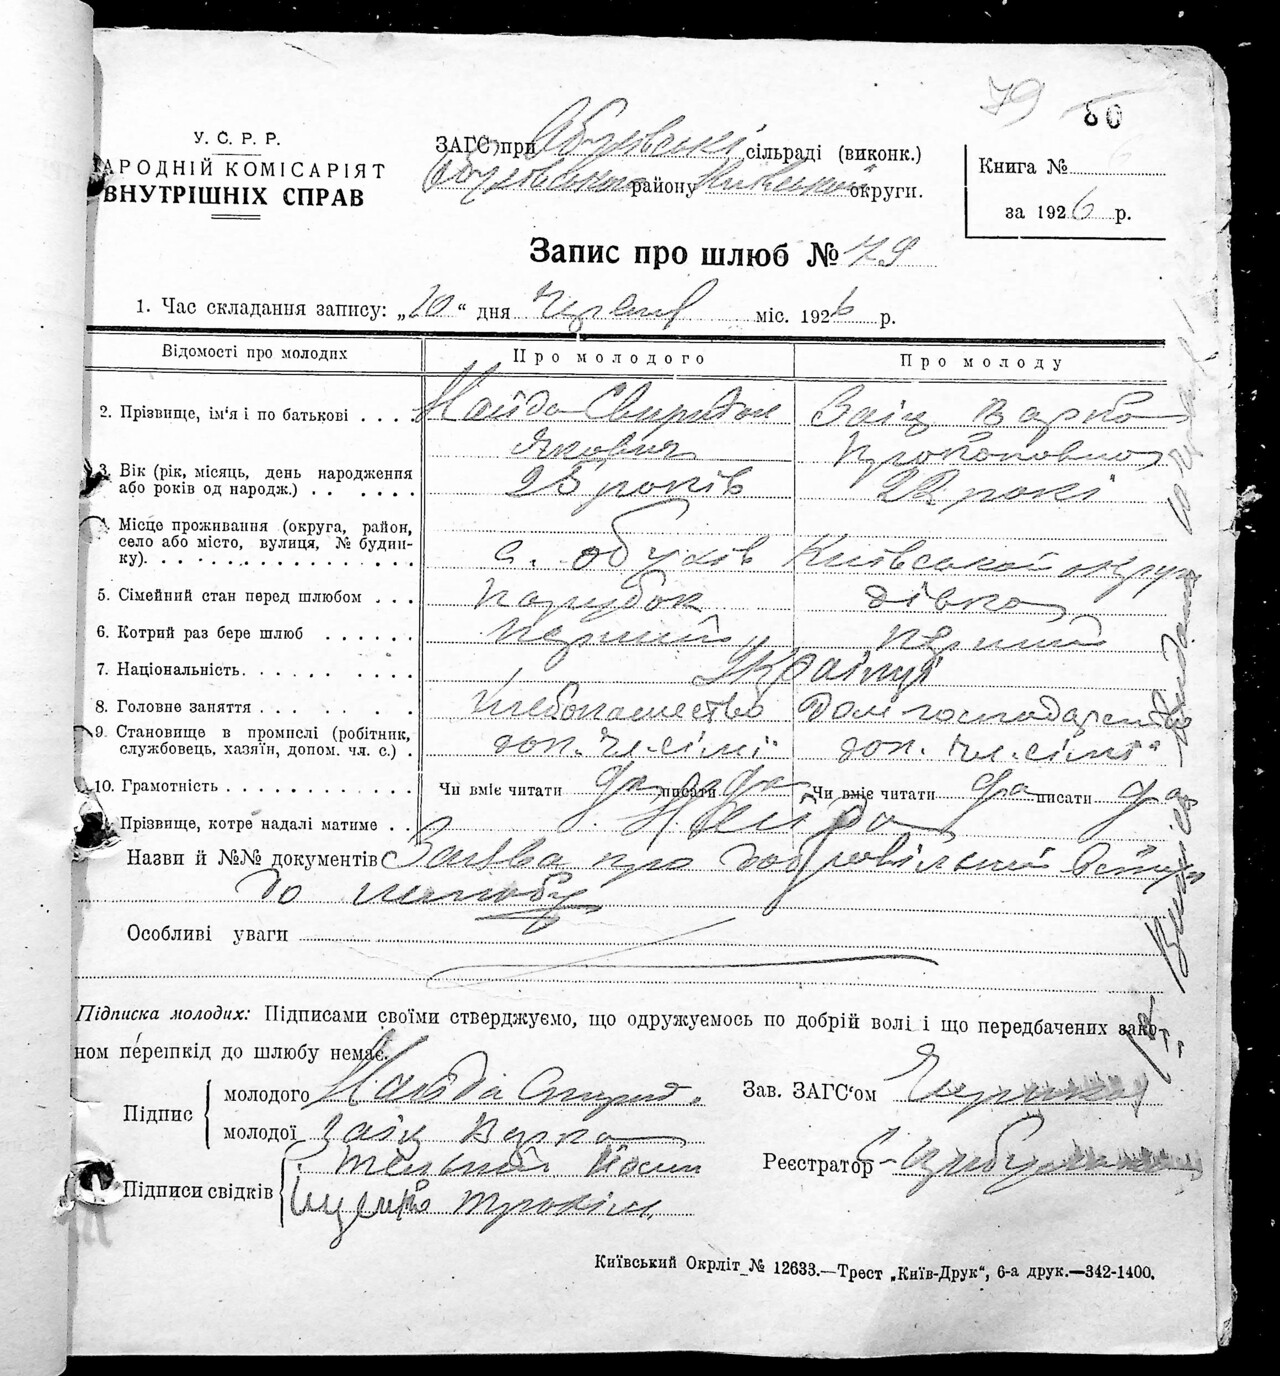 79 80
У. С. Р. Р.
НАРОДНІЙ КОМІСАРІЯТ
ВНУТРІШНІХ СПРАВ
ЗАГС при Обухівські сільраді (виконк.)
Обухівського району Київської округи.
Книга № 6
за 1926 р.
Запис про шлюб № 79
1. Час складання запису: „10“ дня Червня міс. 1926 р.
Відомості про молодих Про молодого Про молоду
2. Прізвище, ім'я і по батькові . . . Найда Свиридон Заіц Варка
Якович Прокоповна
3. Вік (рік, місяць, день народження
або років од народж.) . . . . . . . 23 років 22 рокі
4. Місце проживання (округа, район,
село або місто, вулиця, № будин-
ку). . . . . . . . . . . . . . . . с. Обухів Київської округи
5. Сімейний стан перед шлюбом . . . парубок дівка
6. Котрий раз бере шлюб . . . . . . перший перший
7. Національність. . . . . . . . . . Українці
8. Головне заняття . . . . . . . . хлебопашество Дом господарство
9. Становище в промислі (робітник,
службовець, хазяїн, допом. чл. с.) . доп. чл. сімї доп. чл. сімї
10. Грамотність . . . . . . . . . . . . Чи вміє читати да писати да Чи вміє читати да писати да
Прізвище, котре надалі матиме . . Найда
Назви й №№ документів Заява про добровільний вступ
до шлюбу
Особливі уваги
Підписка молодих: Підписами своїми стверджуємо, що одружуємось по добрій волі і що передбачених зако-
ном перешкід до шлюбу немає.
Підпис
молодого Найда Спирид.
молодої Заіц Варка
Зав. ЗАГС'ом
Підписи свідків
Йосип
Іщенко Трохім
Реєстратор
Київський Окрліт № 12633.—Трест „Київ-Друк“, 6-а друк.—342-1400.